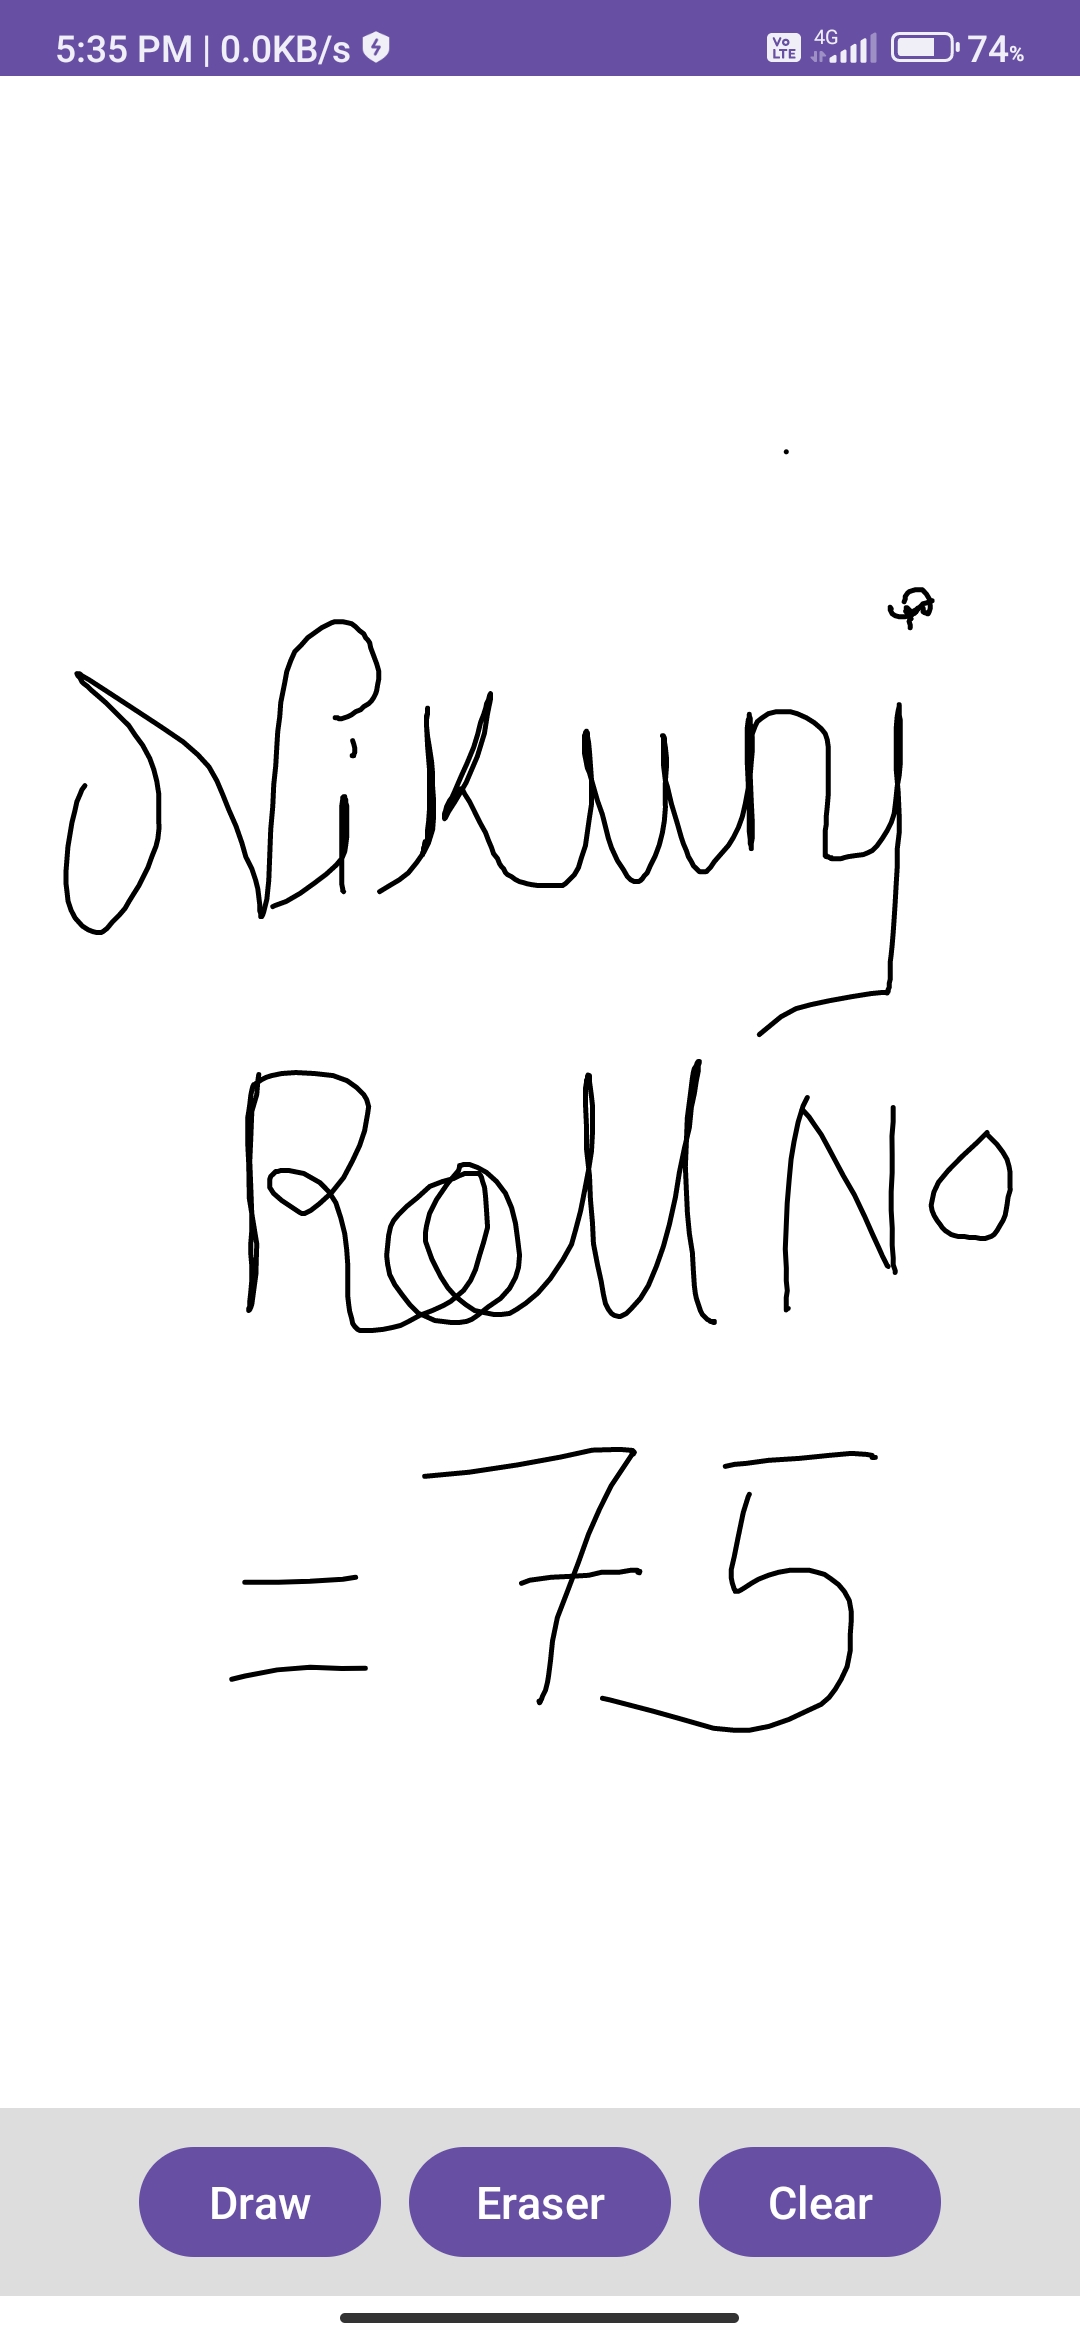 5:35 PM | 0.0KB/s Vo LTE 4G 74%
Nikunj
Roll No
= 75
Draw Eraser Clear